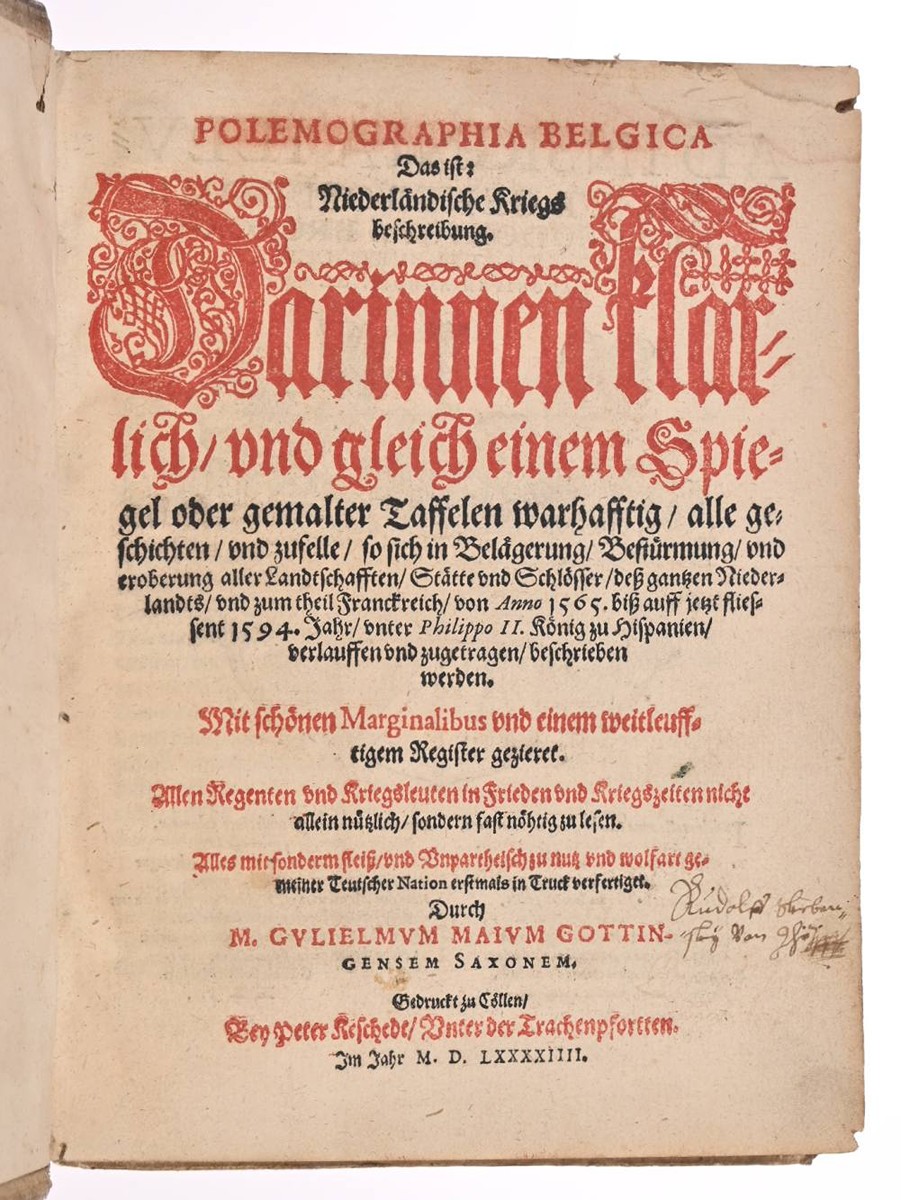 POLEMOGRAPHIA BELGICA
Das ist:
Niederländische Kriegs
beschreibung.
Darinnen klar-
lich/ vnd gleich einem Spie-
gel oder gemalter Taffelen warhafftig/ alle ge-
schichten/ vnd zufelle/ so sich in Belägerung/ Bestürmung/ vnd
eroberung aller Landtschafften/ Stätte vnd Schlösser/ deß gantzen Nieder-
landts/ vnd zum theil Franckreich/ von Anno 1565. biß auff jetzt flies-
sent 1594. Jahr/ vnter Philippo II. König zu Hispanien/
verlauffen vnd zugetragen/ beschrieben
werden.
Mit schönen Marginalibus vnd einem weitleuff-
tigem Register gezieret.
Allen Regenten vnd Kriegsleuten in Frieden vnd Kriegszeiten nicht
allein nützlich/ sondern fast nöhtig zu lesen.
Alles mit sonderm fleiß/ vnd Vnpartheisch zu nutz vnd wolfart ge-
meiner Teutscher Nation erstmals in Truck verfertiget.
Durch
M. GVLIELMVM MAIVM GOTTIN-
GENSEM SAXONEM.
Rudolf
von
Gedruckt zu Cöllen/
Bey Peter Keschedt/ Vnter der Trachenpfortten.
Im Jahr M. D. LXXXXIIII.